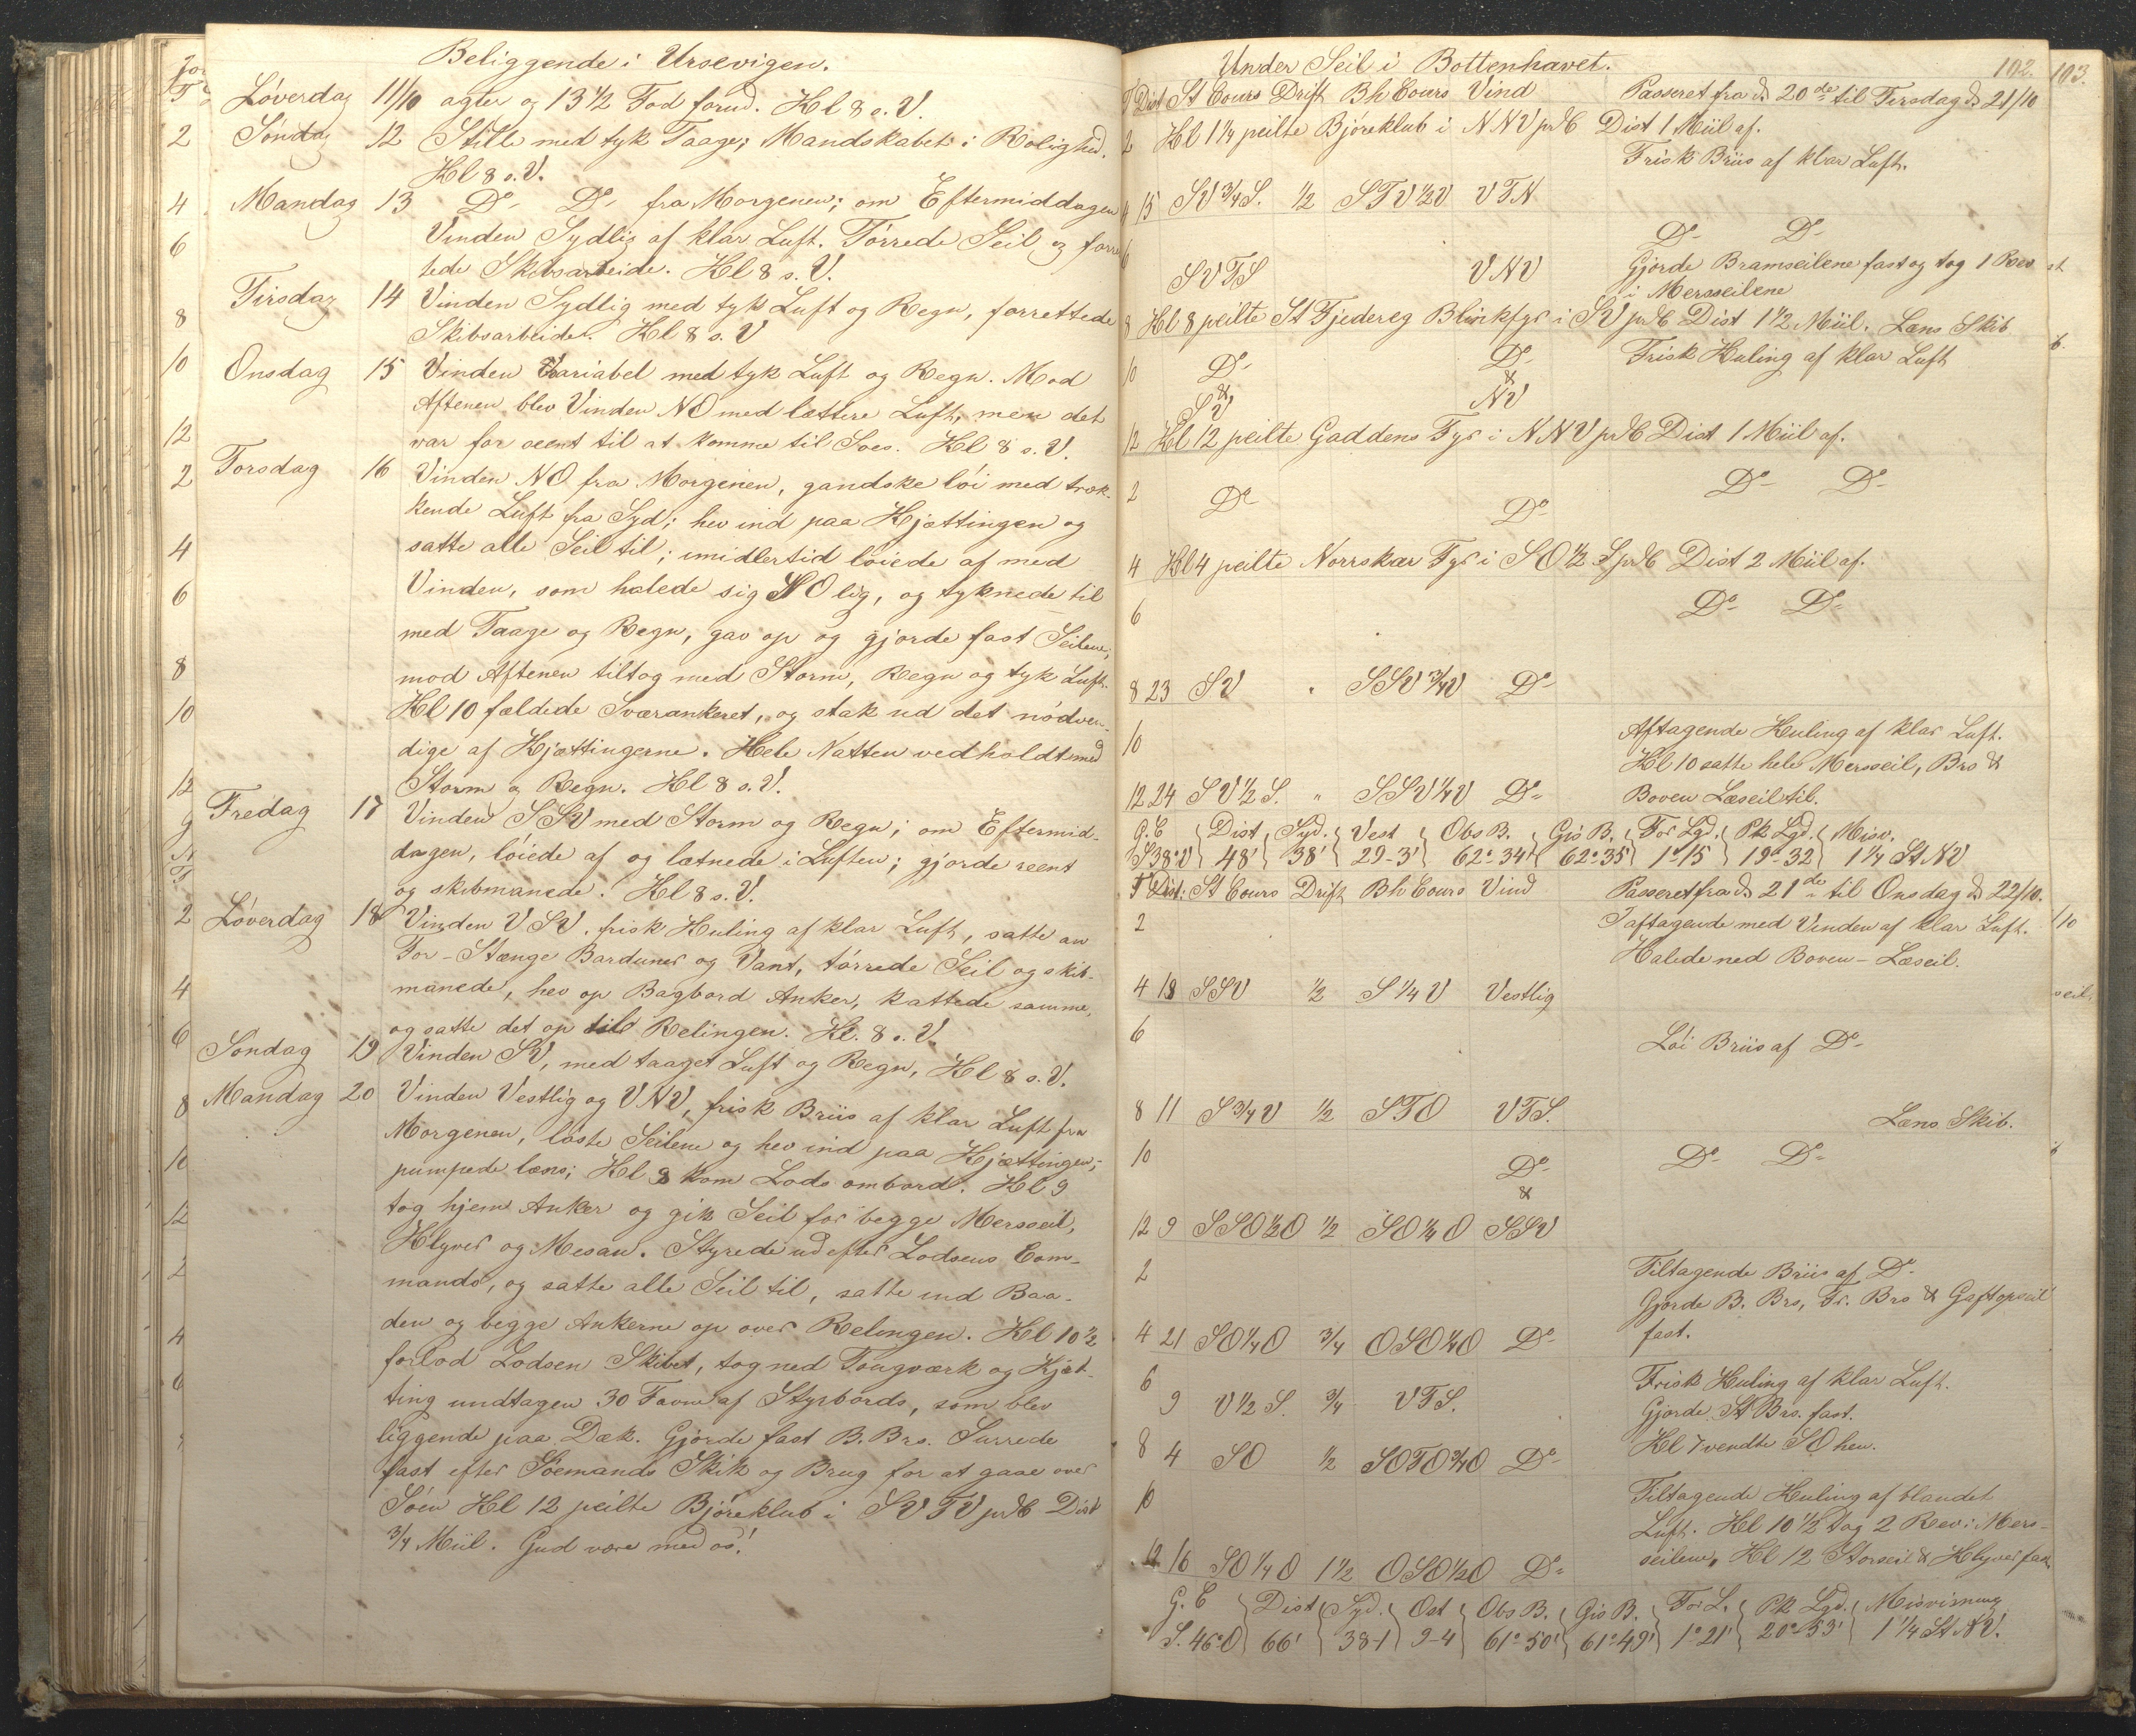 Beliggende i Ursevigen.
Löverdag 11/10 agter og 13 1/2 Fod forud. Kl 8 s. V.
Söndag 12 Stille med tyk Taage; Mandskabet i Rolighed.
Kl 8 s. V.
Mandag 13 Do Do fra Morgenen; om Eftermiddagen
Vinden Sydlig af klar Luft. Törrede Seil og forret
tede Skibsarbeide. Kl 8 s. V.
Tirsdag 14 Vinden Sydlig med tyk Luft og Regn, forrettede
Skibsarbeide. Kl 8 s. V
Onsdag 15 Vinden Variabel med tyk Luft og Regn. Mod
Aftenen blev Vinden NO med lættere Luft, men det
var for seent til at komme til Soes. Kl 8 s. V.
Torsdag 16 Vinden NO fra Morgenen, gandske löi med træk-
kende Luft fra Syd; hev ind paa Kjættingen og
satte alle Seil til; imidlertid löiede af med
Vinden, som halede sig SOlig, og tyknede til
med Taage og Regn, gav op og gjorde fast Seilene;
mod Aftenen tiltog med Storm, Regn og tyk Luft.
Kl 10 fældede Sværankeret, og stak ud det nödven-
dige af Kjættingerne. Hele Natten vedholdt med
Storm og Regn. Kl 8 s. V.
Fredag 17 Vinden SSV med Storm og Regn; om Eftermid-
dagen, löiede af og lætnede i Luften; gjorde reent
og skibmanede. Kl 8 s. V.
Löverdag 18 Vinden VSV, frisk Kuling af klar Luft, satte an
For-Stænge Barduner og Vant, törrede Seil og skib-
manede, hev op Bagbord Anker, kattede samme,
og satte det op til Relingen. Kl. 8 s. V.
Söndag 19 Vinden SV, med taaget Luft og Regn, Kl 8 s. V.
Mandag 20 Vinden Vestlig og VNV, frisk Briis af klar Luft fra
Morgenen, löste Seilene og hev ind paa Kjættingen;
pumpede læns; Kl 8 kom Lods ombord. Kl 9
tog hjem Anker og gik Seil for begge Mersseil,
Klyver og Mesan. Styrede ud efter Lodsens Com-
mando, og satte alle Seil til, satte ind Baa-
den og begge Ankerne op over Relingen. Kl 10 1/2
forlod Lodsen Skibet, tog ned Tougværk og Kjæt-
ting undtagen 30 Favne af Styrbords, som blev
liggende paa Dæk. Gjorde fast B. Brs. Surrede
fast efter Söemands Skik og Brug for at gaae over
Söen Kl 12 peilte Björeklub i SVTV pr C Dist
3/4 Miil. Gud være med os!
Under Seil i Bottenhavet. 102. 103.
T Dist St Cours Drift Bh Cours Vind Passeret fra d. 20de til Tirsdag d. 21/10
2 Kl 1 1/4 peilte Björeklub i NNV pr C Dist 1 Miil af.
Frisk Briis af klar Luft.
4 15 SV 3/4 S. 1/2 STV 1/2 V VTN
6 Do Do
SVTS VNV Gjorde Bramseilene fast og tog 1 Rev
i Mersseilene
8 Kl 8 peilte St Fjedereg Blinkfyr i SV pr C Dist 1 1/2 Miil. Læns Skib
10 Do Do Frisk Kuling af klar Luft
& &
SV NV
12 Kl 12 peilte Gaddens Fyr i NNV pr C Dist 1 Miil af.
2 Do Do Do Do
4 Kl 4 peilte Norrskær Fyr i SO 1/2 S pr C Dist 2 Miil af.
6 Do Do
8 23 SV " SSV 3/4 V Do
10 Aftagende Kuling af klar Luft.
Kl 10 satte hele Mersseil, Brs &
12 24 SV 1/2 S. " SSV 1/4 V Do Boven Læseil til.
G. C Dist Syd. Vest Obs B. Gis B. For Lgd. Pk Lgd. Misv.
S38°V 48' 38' 29-3' 62°34' 62°35' 1°15 19°-32 1 1/4 St NV
T Dist: St Cours Drift Bh Cours Vind Passeret fra d. 21de til Onsdag d. 22/10.
2 Iaftagende med Vinden af klar Luft.
Halede ned Boven-Læseil.
4 18 SSV 1/2 S 1/4 V Vestlig
6 Löi Briis af Do
8 11 S 3/4 V 1/2 STO VTS. Læns Skib.
10 Do Do Do
&
12 9 SSO 1/2 O 1/2 SO 1/4 O SSV
2 Tiltagende Briis af Do
Gjorde B. Brs, Fr. Brs & Gaftopseil
4 21 SO 1/4 O 3/4 OSO 1/4 O Do fast.
6 Frisk Kuling af klar Luft.
9 V 1/2 S. 3/4 VTS. Gjorde St Brs. fast.
8 4 SO 1/2 SOTO 3/4 O Do Kl 7 vendte SO hen.
10 Tiltagende Kuling af blandet
Luft. Kl 10 1/2 tog 2 Rev i Mers-
12 16 SO 1/4 O 1 1/2 OSO 1/2 O Do seilene, Kl 12 Storseil & Klyver fast
G. C Dist Syd. Ost Obs B. Gis B. For L. Pk Lgd. Misvisning
S. 46°O 66' 38-1 9-4 61°50' 61°49' 1°21' 20°-53' 1 1/4 St NV.